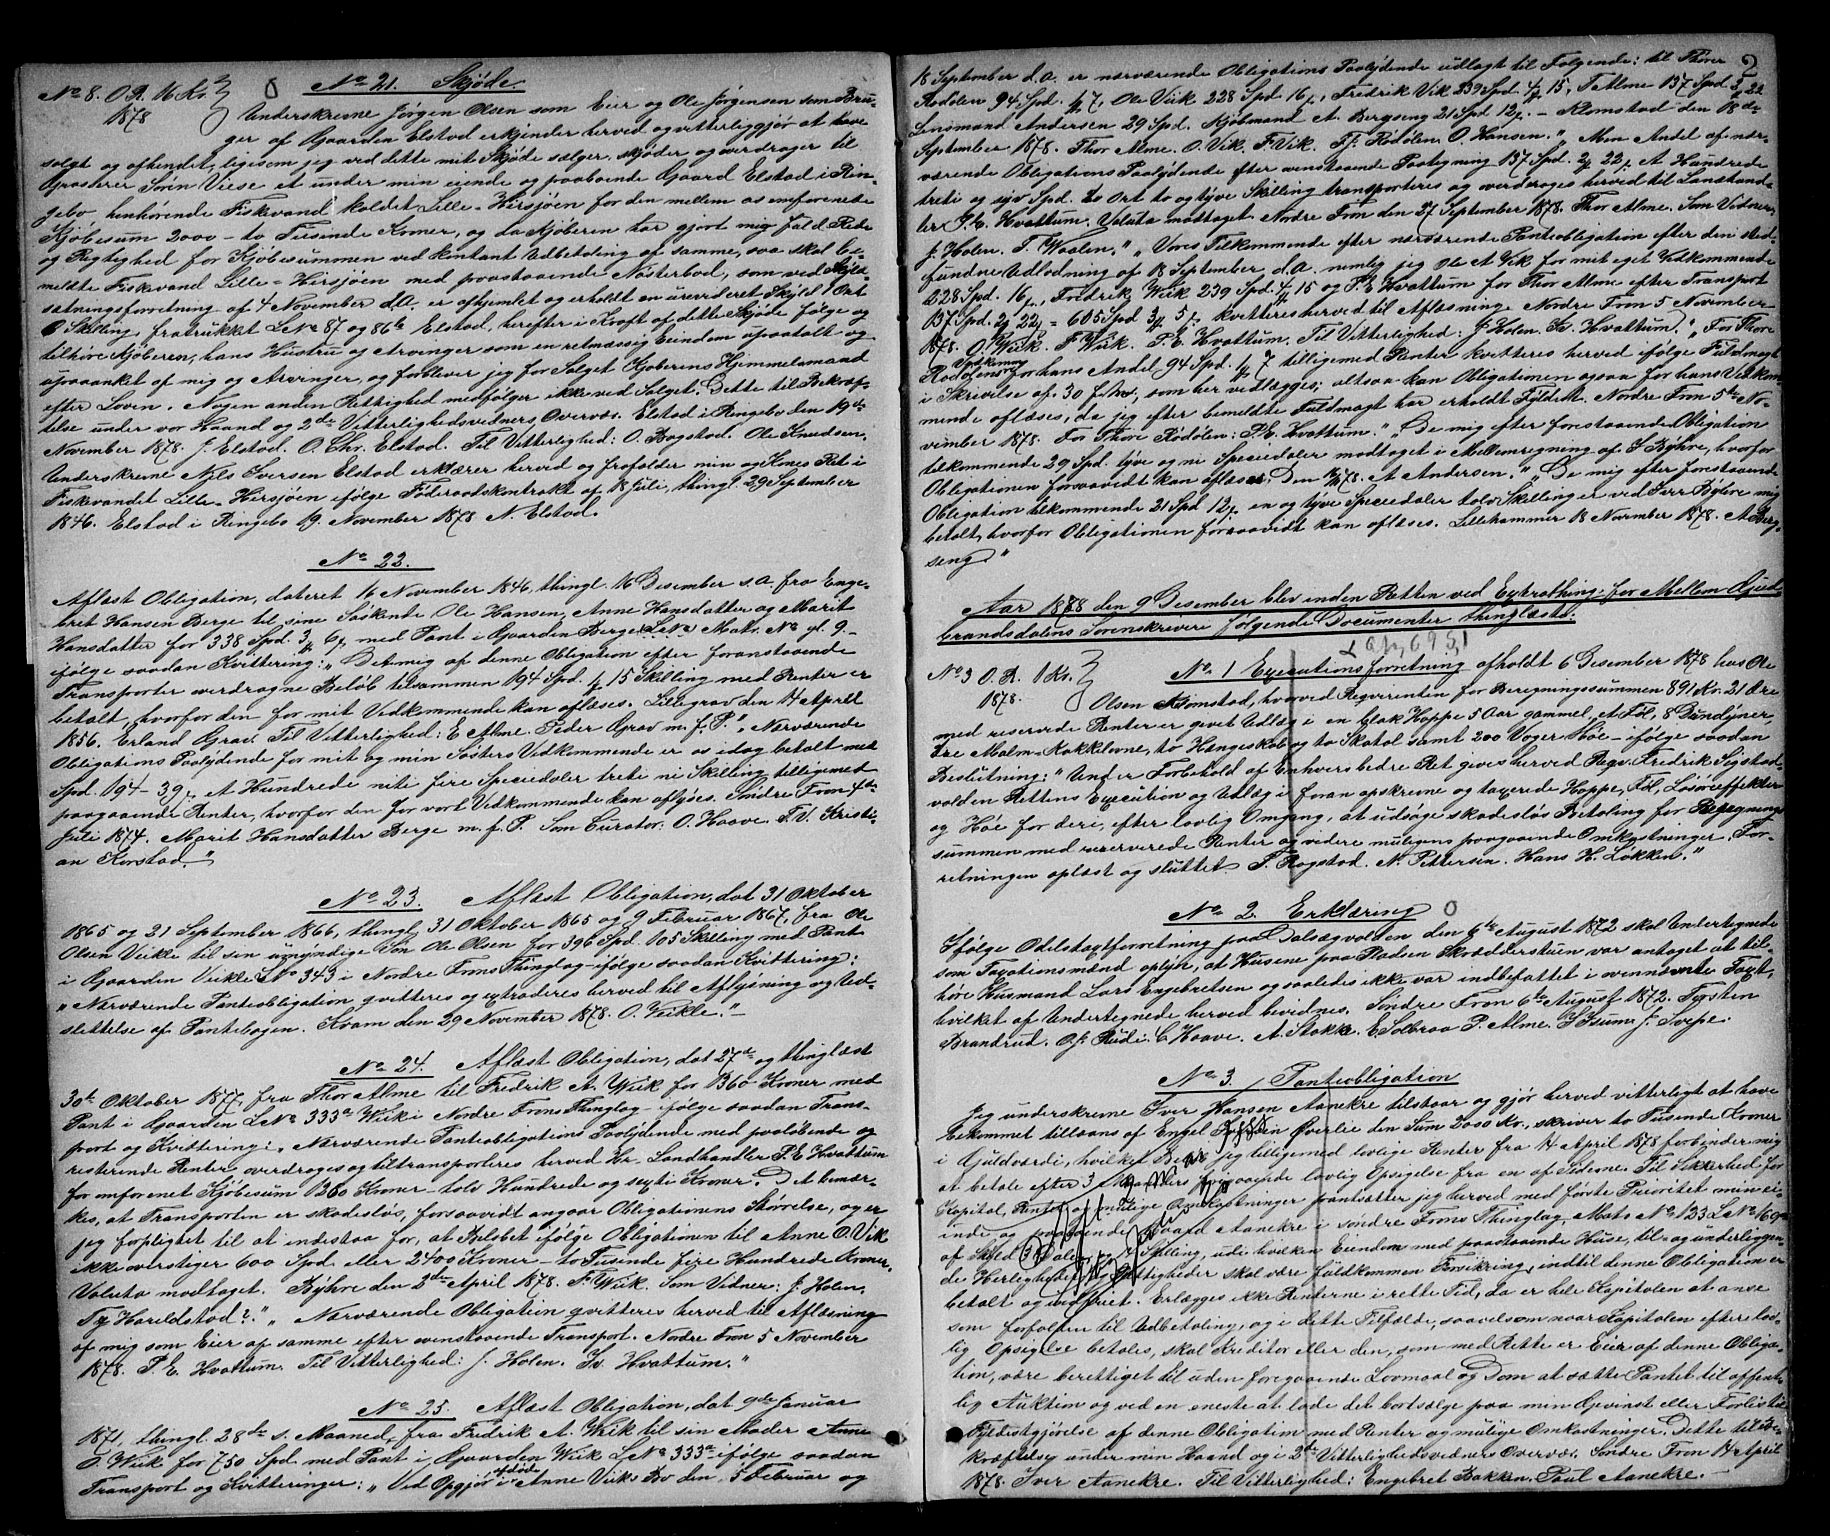 No 8. O.R. 16 Kr. No 21. Skjøde.
1878 Underskrevne Jörgen Olsen som Eier og Ole Jörgensen som Bru-
ger af Gaarden Elstad erkjender herved og vitterliggjør at have
solgt og afhendet, ligesom jeg ved dette mit Skjøde sælger, skjøder og overdrager til
Grosserer Sörin Viese et under min eiende og paaboende Gaard Elstad i Rin-
gebo henhørende Fiskevand kaldet Lille-Hirsjøen for den mellem os omforenede
Kjöbesum 2000 - to Tusende Kroner, og da Kjöberen har gjort mig fuld Rede
og Rigtighed for Kjöbesummen ved kontant Udbetaling af samme, saa skal be-
meldte Fiskvand Lille-Hirsjøen med paastaaende Nøsterbod, som ved Skyld-
sætningsforretning af 4 November d.A. er afhjemlet og erholdt en urevideret Skyld 1 Ort
6 Skilling, fratrukket L.No 87 og 86b Elstad, herefter i Kraft af dette Skjøde følge og
tilhøre Kjøberen, hans Hustru og Arvinger som en retmæssig Eiendom upaatalt og
upaaanket af mig og Arvinger, og forbliver jeg for Salget Kjøberens Hjemmelsmand
efter Loven. Nogen anden Rettighed medfølger ikke ved Salget. Dette til Bekræf-
telse under vor Haand og 2de Vitterlighedsvidners Overvær. Elstad i Ringebo den 19de
November 1878. J. Elstad. O. Chr. Elstad. Til Vitterlighed: O. Bagstad. Ole Knudsen.
Underskrevne Niels Iversen Elstad erklærer herved og frafalder min og Kones Ret i
Fiskvandet Lille-Hirsjøen ifølge Föderaadskontrakt af 18 Juli, thingl. 29 September
1846. Elstad i Ringebo 19. November 1878 N. Elstad.
No 22.
Aflæst Obligation, dateret 16 November 1846, thingl. 16 Desember s.A. fra Enge-
bret Hansen Berge til sine Søskende Ole Hansen, Anne Hansdatter og Marit
Hansdatter for 338 Spd. 3 ß 6 med Pant i Gaarden Berge L.No Matr. No gl. 9 -
ifølge saadan Kvittering: „Det mig af denne Obligation efter foranstaaende
Transporter overdragne Beløb tilsammen 194 Spd. 1 15 Skilling med Renter er
betalt, hvorfor den for mit Vedkommende kan aflæses. Lillegrav den 14 April
1856. Erland Grav. Til Vitterlighed: E. Alme. Peder Grav m.f.P.” „Nærværende
Obligations Paalydende for mit og min Søsters Vedkommende er os idag betalt med
Spd. 194 - 39 ß, Et Hundrede niti fire Speciedaler treti ni Skilling tilligemed
paagaaende Renter, hvorfor den for vort Vedkommende kan aflyses. Søndre Fron 4de
Juli 1874. Marit Hansdatter Berge m.f.P. Som Curator: O. Haave. T.V. Kristi-
an Korstad.”
No 23. Aflæst Obligation, dat 31 Oktober
1865 og 21 September 1866, thingl. 31 Oktober 1865 og 9 Februar 1867, fra Ole
Olsen Veikle til sin umyndige Søn Ole Olsen for 396 Spd. 105 Skilling med Pant
i Gaarden Veikle L.No 343 i Nordre Frons Thinglag - ifølge saadan Kvittering:
„Nærværende Panteobligation qvitteres og extraderes herved til Aflysning og Ud-
slettelse af Pantebogen. Kvam den 29 November 1878. O. Veikle.”
No 24. Aflæst Obligation, dat 27de og thinglæst
30te Oktober 1877, fra Thor Alme til Fredrik A. Wiik for 1360 Kroner med
Pant i Gaarden L.No 333a Wiik i Nordre Frons Thinglag - ifølge saadan Trans-
port og Kvittering: „Nærværende Panteobligations Paalydende med paaløbende og
resterende Renter overdrages og tiltransporteres herved Hr. Landhandler P.E. Hvattum
for omforenet Kjöbesum 1260 Kroner - tolv Hundrede og sexti Kroner. Det bemær-
kes, at Transporten er skadesløs, forsaavidt angaar Obligationens Størrelse, og er
jeg forpligtet til at indestaa for, at Beløbet ifølge Obligationen til Anne O. Vik
ikke overstiger 600 Spd. eller 2400 Kroner - to Tusende fire Hundrede Kroner.
Valuta modtaget. Byhre den 2den April 1878. F. Wiik. Som Vidner: J. Holen.
Ty Harildstad?.” „Nærværende Obligation qvitteres herved til Aflæsning
af mig som Eier af samme efter ovenstaaende Transport. Nordre Fron 5 November
1878. P.E. Hvattum. Til Vitterlighed: J. Holen. Iv. Hvattum.”
No 25. Aflæst Obligation, dat 9de Januar
1871, thingl. 28de s. Maaned, fra Fredrik A. Wiik til sin Moder Anne
O. Wiik for 750 Spd. med Pant i Gaarden Wiik L.No 333a - ifølge saadan
Transport og Kvitteringer: „Ved Opgjør i afdöde Anne Viiks Bo den 5 Februar og
2
18 September d.A. er nærværende Obligations Paalydende udlagt til Følgende: til Thore
Rødølen 94 Spd. 1/7, Ole Viik 228 Spd 16 ß, Fredrik Vik 239 Spd. 4/15, T. Alme 137 Spd. 2, 22
Lensmand Andersen 29 Spd. Kjøbmand A. Bergseng 21 Spd 12 ß. - Klomstad den 18de
September 1878. Thor Alme. O. Vik. F. Vik. Ff. Rødølen. O. Hansen.” „Min Andel af nær-
værende Obligations Paalydende efter ovenstaaende Paategning 137 Spd. 2 22, Et Hundrede
treti og syv Spd. to Ort to og tyve Skilling transporteres og overdrages herved til Landhand-
ler P.E. Hvattum. Valuta modtaget. Nordre Fron den 27 September 1878. Thor Alme. Som Vidner:
J. Holen. T. Waalen.” „Vores Tilkommende efter nærværende Panteobligation efter den sted-
fundne Udlodning af 18 September d.A. nemlig jeg Ole A. Vik for mit eget Vedkommende
228 Spd. 16 ß, Fredrik Wiik 239 Spd. 4/15 og P.E. Hvattum for Thor Alme efter Transport
137 Spd. 2 22 = 605 Spd 3 5, kvitteres herved til Aflæsning. Nordre Fron 5 November
1878. O. Wiik. F. Wiik. P.E. Hvattum. Til Vitterlighed: J. Holen. Iv. Hvattum.” „For Thore
Rødølens Vedkomm. for hans Andel 94 Spd. 1/7 tilligemed Renter kvitteres herved ifølge Fuldmagt
i Skrivelse af 30 f.M., som her vedlægges; altsaa kan Obligationen ogsaa for hans Vedkom-
mende aflæses, da jeg efter bemeldte Fuldmagt har erholdt Fyldest. Nordre Fron 5te No-
vember 1878. For Thore Rødølen: P.E. Hvattum.” „De mig efter foranstaaende Obligation
tilkommende 29 Spd. tyve og ni Speciedaler modtaget i Mellemregning af I. Byhre, hvorfor
Obligationen forsaavidt kan aflæses. Den /78. A. Andersen.” „De mig efter forestaaende
Obligation tilkommende 21 Spd 12 ß en og tyve Speciedaler tolv Skilling er ved Iver Byhre mig
betalt, hvorfor Obligationen forsaavidt kan aflæses. Lillehammer 18 November 1878. A. Berg-
seng.”
Aar 1878 den 9 Desember blev inden Retten ved Extrathing for Mellem Gud-
brandsdalens Sorenskriveri følgende Documenter thinglæst:
No 3 O.R. 1 Kr. No 1 Executionsforretning afholdt 6 Desember 1878 hos Ole
1878. Olsen Klomstad, hvorved Reqvirenten for Beregningssummen 891 Kr. 21 Øre
med reserverede Renter er givet Udlæg i en blak Hoppe 5 Aar gammel, et Føl, 8 Bundyner,
tre Malm-Kakkelovne, to Hængeskab og to Skatol samt 200 Voger Høe - ifølge saadan
Beslutning: „Under Forbehold af Enhvers bedre Ret gives herved Reqv. Fredrik Sigstad-
volden Rettens Execution og Udlæg i foran opskrevne og taxerede Hoppe, Føl, Løsøreeffekter
og Høe for deri, efter lovlig Omgang, at udsøge skadesløs Betaling for Beregnings-
summen med reserverede Renter og videre muligens paagaaende Omkostninger. For-
retningen oplæst og sluttet. S. Ragstad. N. Pettersen. Hans H. Løkken.”
No 2. Erklæring
Ifølge Odelstaxtforretning paa Dalsægvolden den 6te August 1872 skal Undertegnede
som Taxationsmænd oplyse, at Husene paa Pladsen Skrædderstuen var antaget at til-
høre Husmand Lars Engebretsen og saaledes ikke var indbefattet i ovennævnte Taxt,
hvilket af Undertegnede herved bevidnes. Søndre Fron 6te August 1872. Torsten
Brandrud. O.J. Rudi. C. Haave. A. Stokke. E. Solbraa. P. Alme. I. Isum. J. Svepe.
No 3. Panteobligation
Jeg underskrevne Iver Hansen Aanekre tilstaar og gjør herved vitterligt at have
bekommet tillaans af Engel Øverlie den Sum 2000 Kr., skriver to Tusende Kroner
i Guldværdi, hvilket Beløb jeg tilligemed lovlige Renter fra 14 April 1878 forbinder mig
at betale efter 3 Maaneders foregaaende lovlig Opsigelse fra en af Siderne. Til Sikkerhed for
Kapital, Renter og mulige Omkostninger pantsætter jeg herved med første Prioritet min ei-
ende og paaboende Gaard Aanekre i søndre Frons Thinglag, Matr. No 123 L.No 169a
af Skyld 3 Daler og Skilling, udi hvilken Eiendom med paastaaende Huse, til- og underliggen-
de Herligheder og Rettigheder skal være fuldkommen Forsikring, indtil denne Obligation er
betalt og indfriet. Erlægges ikke Renterne i rette Tid, da er hele Kapitalen at anse
som forfalden til Udbetaling, og i dette Tilfælde, saavelsom naar Kapitalen efter lov-
lig Opsigelse betales, skal Kreditor eller den, som med Rette er Eier af denne Obliga-
tion, være berettiget til uden foregaaende Lovmaal og Dom at sætte Pantet til offent-
lig Auktion og ved en eneste at lade det bortsælge paa min Gevinst eller Forlis til
Fyldestgjørelse af denne Obligation med Renter og mulige Omkostninger. Dette til Be-
kræftelse under min Haand og i 2de Vitterlighedsvidners Overvær. Søndre Fron 14 April
1878. Iver Aanekre. Til Vitterlighed: Engebret Bakken. Paul Aanekre. -